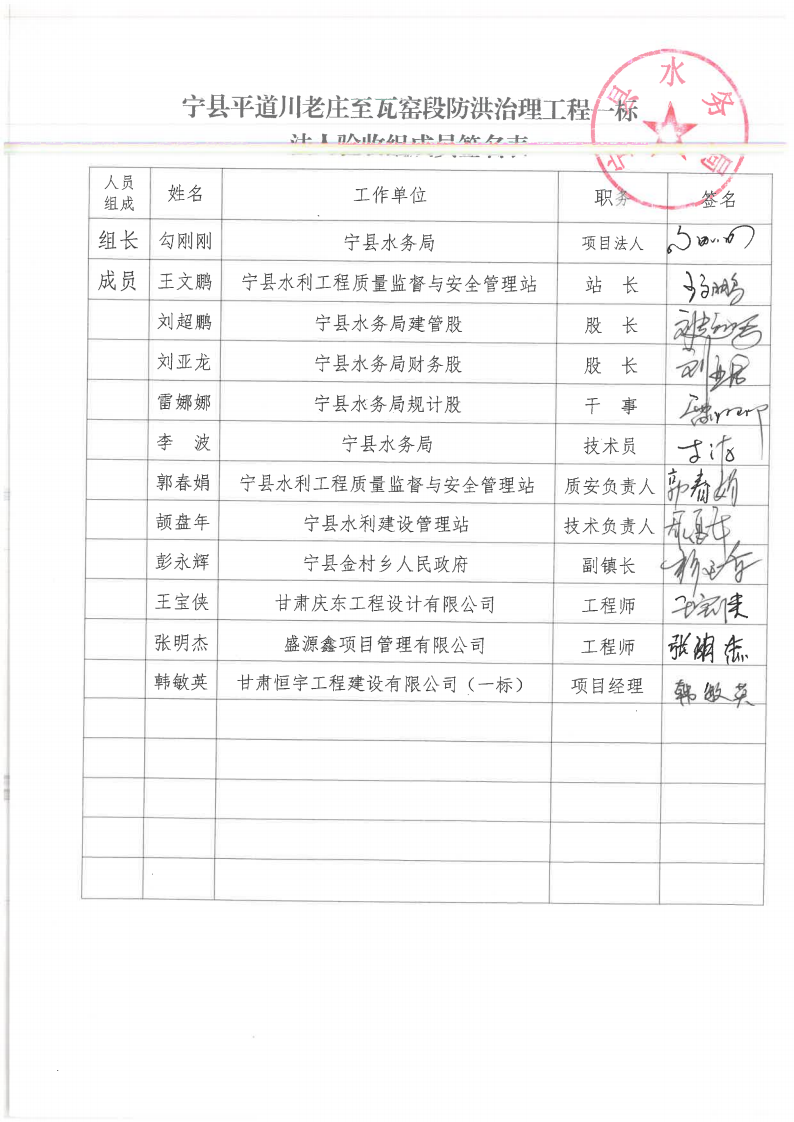 宁县平道川老庄至瓦窑段防洪治理工程一标
法人验收组成员签名表
宁县水务局
人员组成 姓名 工作单位 职务 签名
组长 勾刚刚 宁县水务局 项目法人
成员 王文鹏 宁县水利工程质量监督与安全管理站 站 长
刘超鹏 宁县水务局建管股 股 长
刘亚龙 宁县水务局财务股 股 长
雷娜娜 宁县水务局规计股 干 事
李 波 宁县水务局 技术员
郭春娟 宁县水利工程质量监督与安全管理站 质安负责人 郭春娟
颉盘年 宁县水利建设管理站 技术负责人
彭永辉 宁县金村乡人民政府 副镇长
王宝侠 甘肃庆东工程设计有限公司 工程师 王宝侠
张明杰 盛源鑫项目管理有限公司 工程师 张明杰
韩敏英 甘肃恒宇工程建设有限公司（一标） 项目经理 韩敏英